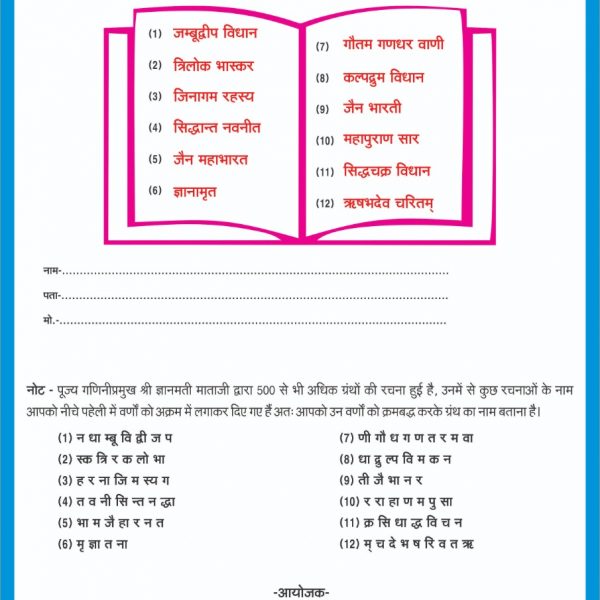 (1) जम्बूद्वीप विधान
(2) त्रिलोक भास्कर
(3) जिनागम रहस्य
(4) सिद्धान्त नवनीत
(5) जैन महाभारत
(6) ज्ञानामृत
(7) गौतम गणधर वाणी
(8) कल्पद्रुम विधान
(9) जैन भारती
(10) महापुराण सार
(11) सिद्धचक्र विधान
(12) ऋषभदेव चरितम्
नाम-
पता-
मो.-
नोट - पूज्य गणिनीप्रमुख श्री ज्ञानमती माताजी द्वारा 500 से भी अधिक ग्रंथों की रचना हुई है, उनमें से कुछ रचनाओं के नाम
आपको नीचे पहेली में वर्णों को अक्रम में लगाकर दिए गए हैं अतः आपको उन वर्णों को क्रमबद्ध करके ग्रंथ का नाम बताना है।
(1) न धा म्बू वि द्वी ज प
(2) स्क त्रि र क लो भा
(3) ह र ना जि म स्य ग
(4) त व नी सि न्त न द्धा
(5) भा म जै हा र न त
(6) मृ ज्ञा त ना
(7) णी गौ ध ग ण त र म वा
(8) धा द्रु ल्प वि म क न
(9) ती जै भा न र
(10) र रा हा ण म पु सा
(11) क्र सि धा द्ध वि च न
(12) म् च दे भ ष रि व त ऋ
-आयोजक-